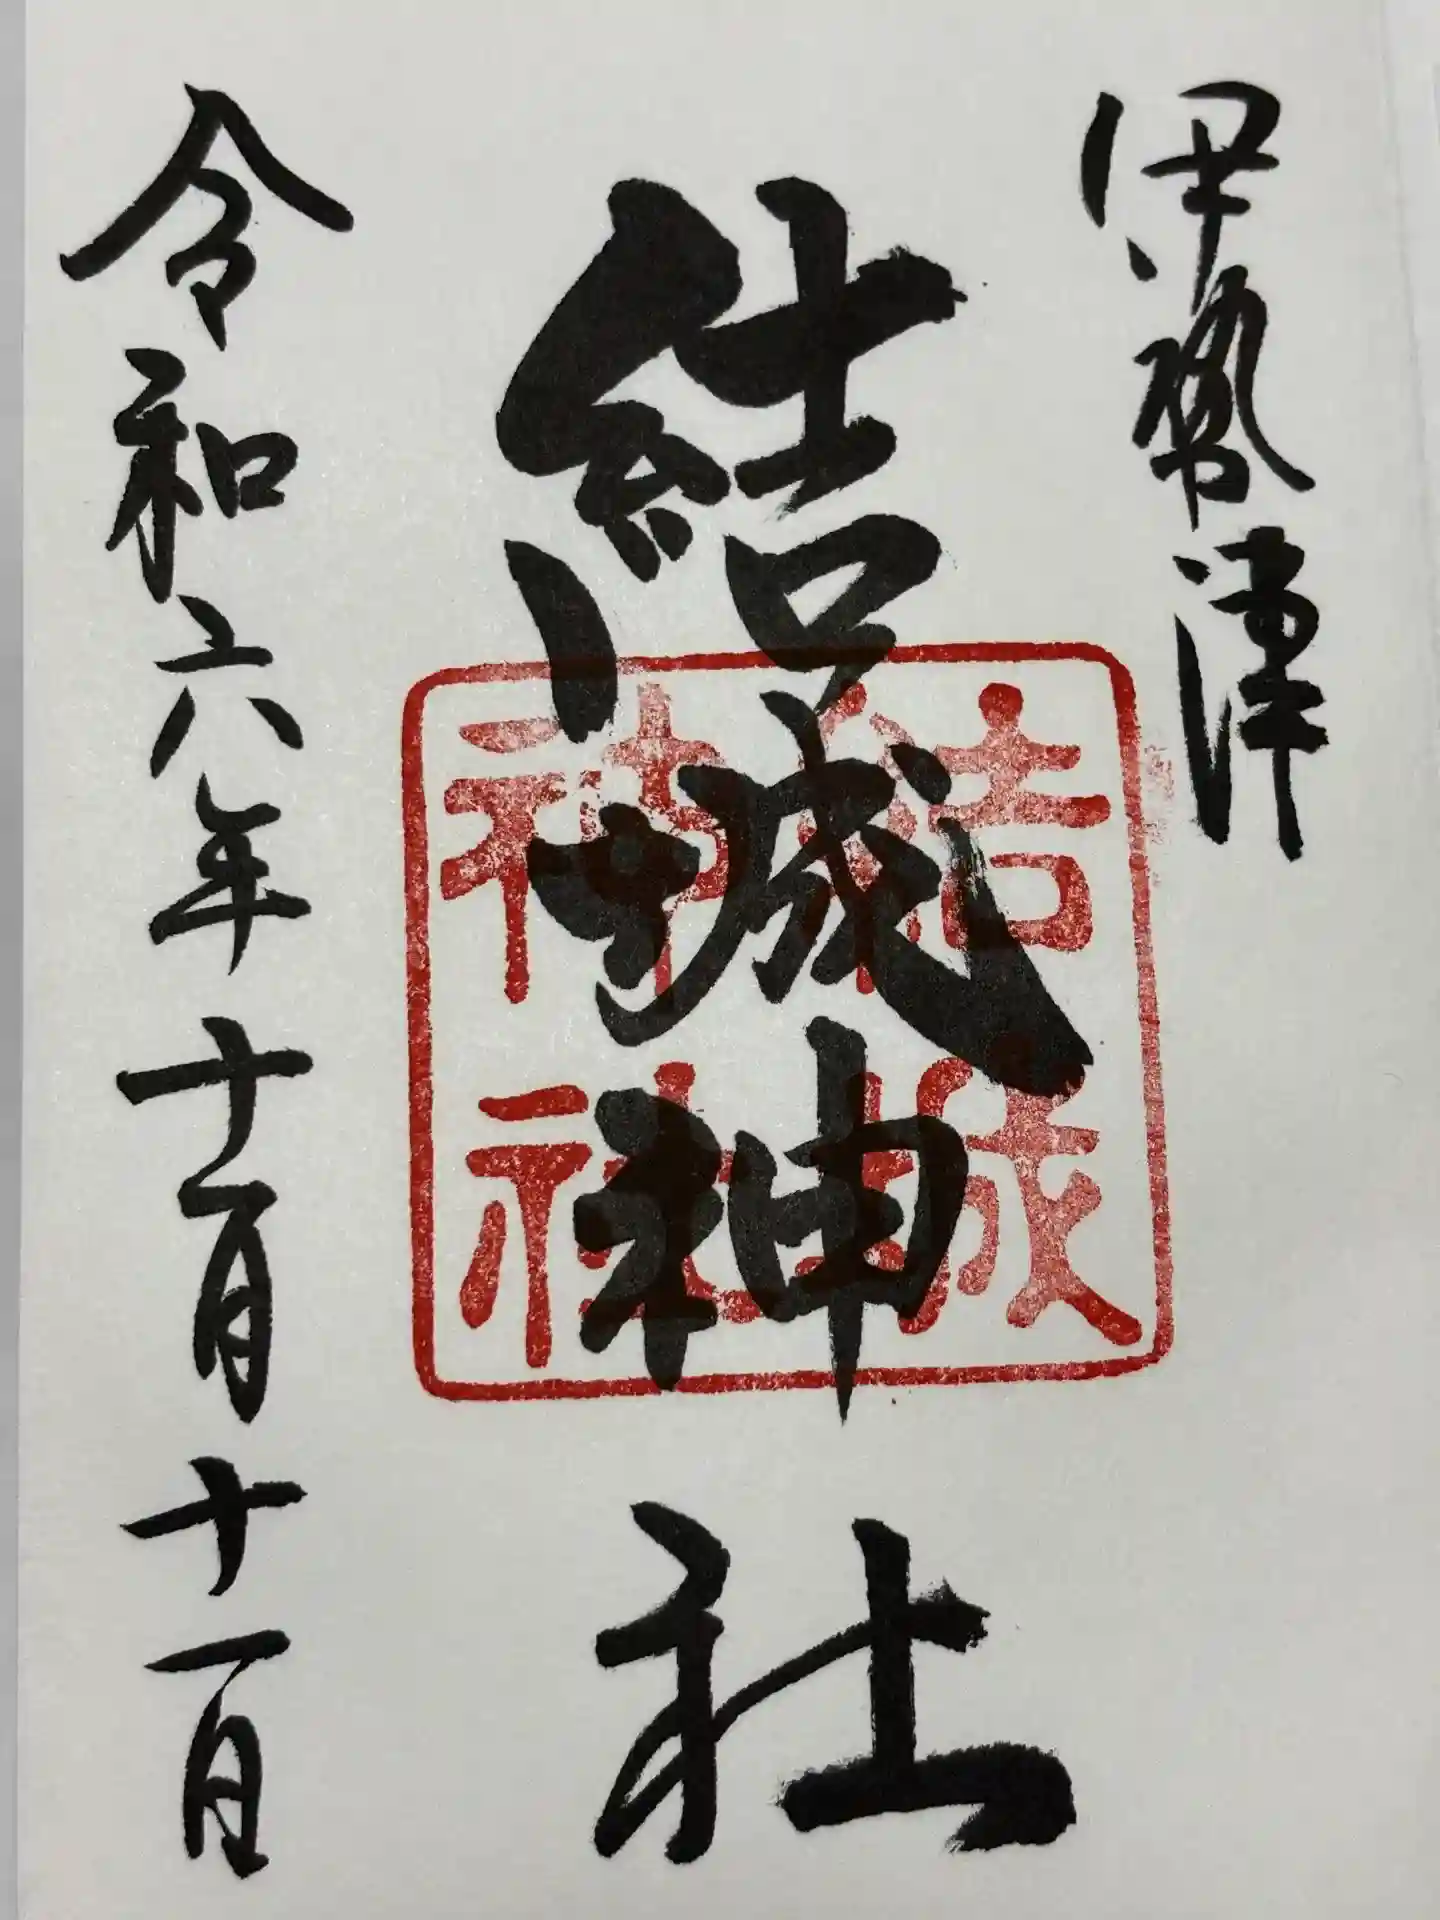 伊勢津
結城神社
結城
神社
令和六年十月十一日